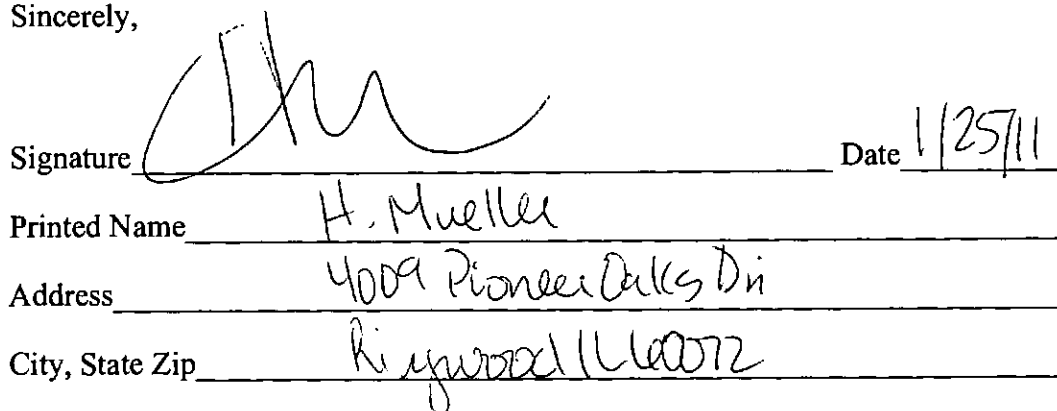 Sincerely,
Signature Date 1/25/11
Printed Name H. Mueller
Address 4009 Pioneer Oaks
City, State Zip IL 60072